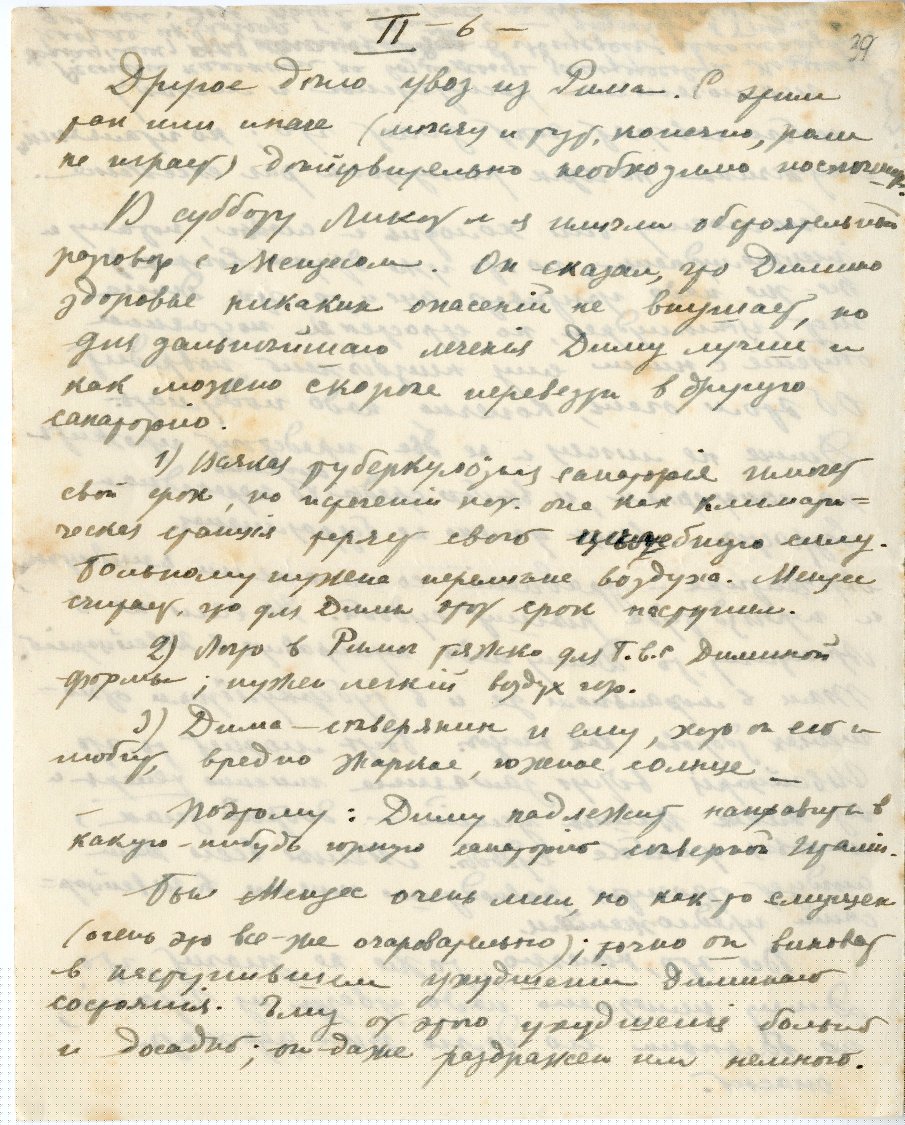 II – 6 –
39
Другое дѣло увоз из Рима. С этим
так или иначе (мнѣ и тут, конечно, роли
не играет) дѣйствительно необходимо
В субботу и я имѣли обстоятельный
разговор с Мендесом. Он сказал, что Димино
здоровье никаких опасенiй не внушает, но
для дальнѣйшаго леченiя Диму лучше и
как можно скорѣе перевезти в другую
санаторiю.
1) Всякая туберкулёзная санаторiя имѣет
свой срок, по истеченiи кот. она как климати=
ческая станцiя теряет свою цѣлебную силу.
Больному нужена перемѣна воздуха. Мендес
считает, что для Димы этот срок наступил.
2) Лѣто в Римѣ тяжко для T.b.c Диминой
формы; нужен легкiй воздух гор.
3) Дима – сѣверянин и ему, хотя он его и
любит, вредно жаркое, южное солнце —
– Поэтому: Диму надлежит направить в
какую-нибудь горную санаторiю сѣверной Италiи.
Был Мендес очень мил, но как-то смущен
(очень это все-же очаровательно); точно он виноват
в наступившем ухудшенiи Диминаго
состоянiя. Ему от этого ухудшенiя больно
и досадно; он даже раздражен им немного.